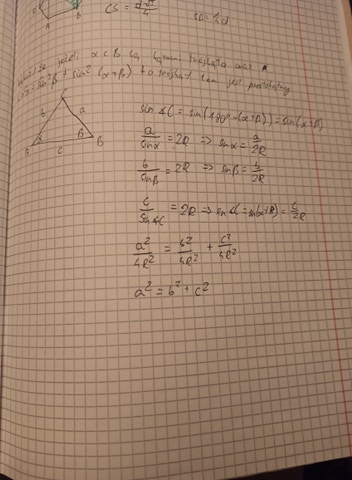 A B
CS = d√7/4
SD = ½d
jeżeli α i β są kątami trójkąta oraz
sin²β + sin²(α+β) to trójkąt ten jest prostokątny
C
b a
A β B
c
sin∢C = sin(180°-(α+β)) = sin(α+β)
a/sinα = 2R => sinα = a/2R
b/sinβ = 2R => sinβ = b/2R
c/sin∢C = 2R => sin∢C = sin(α+β) = c/2R
a²/4R² = b²/4R² + c²/4R²
a² = b² + c²